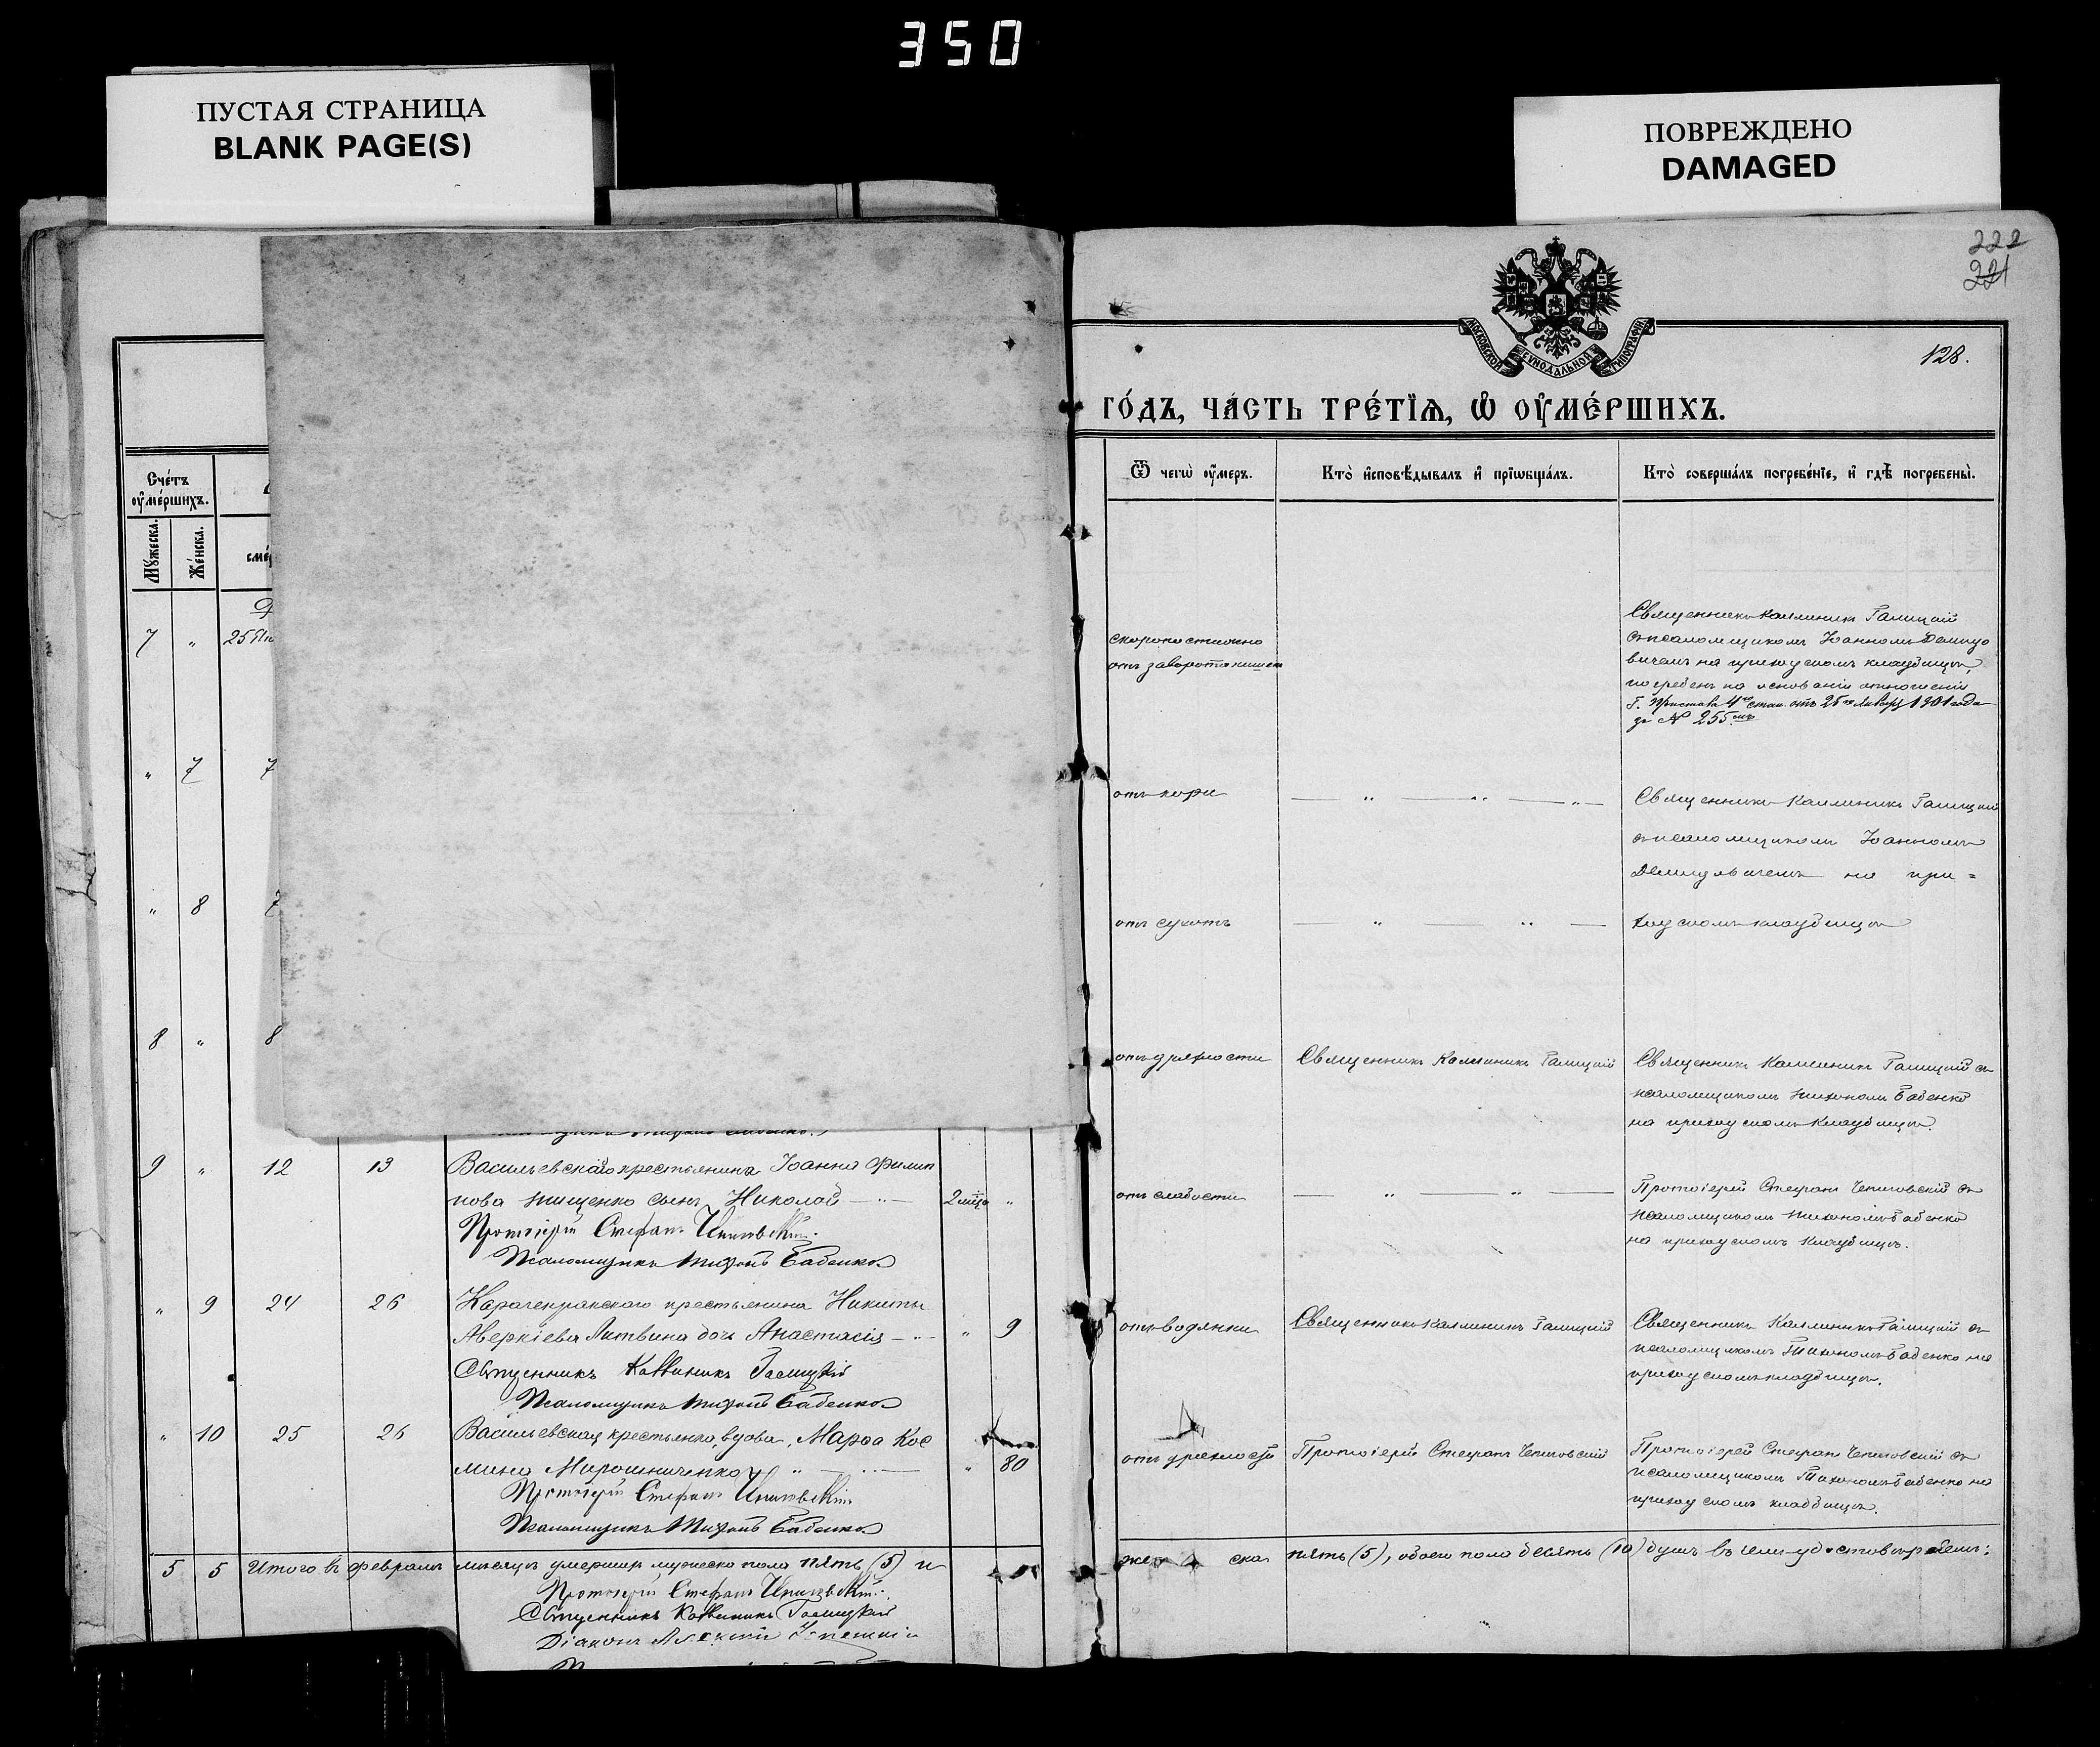 350
ПУСТАЯ СТРАНИЦА
BLANK PAGE(S)
ПОВРЕЖДЕНО
DAMAGED
222
221
МОСКОВСКОЙ СѴНОДАЛЬНОЙ ТИПОГРАФІИ
128.
ГО́ДЪ, ЧА́СТЬ ТРЕ́ТІѦ, Ѡ҆ ОУ҆МЕ́РШИХЪ.
Сче́тъ
оу҆ме́ршихъ.
Мꙋ́жеска.
Же́нска.
Ѿ чегѡ̀ оу҆́меръ.
Кто̀ и҆сповѣ́дывалъ и҆ прїѡбща́лъ.
Кто̀ соверша́лъ погребе́нїе, и҆ гдѣ̀ погребены̀.
7 " 25
скоропостижно
отъ заворота кишекъ
Священникъ Каллиникъ Галицкій
съ псаломщикомъ Іоанномъ Демидо
вичемъ на приходскомъ кладбищѣ,
погребенъ на основаніи отношенія
Г. Пристава 4го стана отъ 26го Января 1901 года
за № 255мъ
" 7 7
отъ кори — " — " — " —
Священникъ Каллиникъ Галицкій
съ псаломщикомъ Іоанномъ
Демидовичемъ на при=
" 8 7
отъ сухотъ — " — " —
ходскомъ кладбищѣ
8 " 8
отъ дряхлости
Священникъ Каллиникъ Галицкій
Священникъ Каллиникъ Галицкій съ
псаломщикомъ Тихономъ Бабенко
на приходскомъ кладбищѣ.
9 " 12 13
Васильевскаго крестьянина Іоанна Филип
пова Тищенко сынъ Николай — " —
2 мѣца "
Протоіерей Стефанъ
Псаломщикъ Тихонъ Бабенко
отъ слабости — " — " —
Протоіерей Стефанъ съ
псаломщикомъ Тихономъ Бабенко
на приходскомъ кладбищѣ.
" 9 24 26
крестьянина Никиты
Аверкіева Литвина дочь Анастасія — " —
" 9
Священникъ Каллиникъ Галицкій
Псаломщикъ Тихонъ Бабенко
отъ водянки
Священникъ Каллиникъ Галицкій
Священникъ Каллиникъ Галицкій съ
псаломщикомъ Тихономъ Бабенко на
приходскомъ кладбищѣ.
" 10 25 26
Васильевская крестьянка, вдова, Марѳа Кос
мина Мирошниченко
" 80
Протоіерей Стефанъ
Псаломщикъ Тихонъ Бабенко
отъ дряхлости
Протоіерей Стефанъ
Протоіерей Стефанъ съ
псаломщикомъ Тихономъ Бабенко на
приходскомъ кладбищѣ.
5 5 Итого въ февралѣ мѣсяцѣ умершихъ мужеска пола пять (5) и
женска пять (5), обоего пола десять (10) душъ въ чемъ удостовѣряемъ:
Протоіерей Стефанъ
Священникъ Каллиникъ Галицкій
Діаконъ